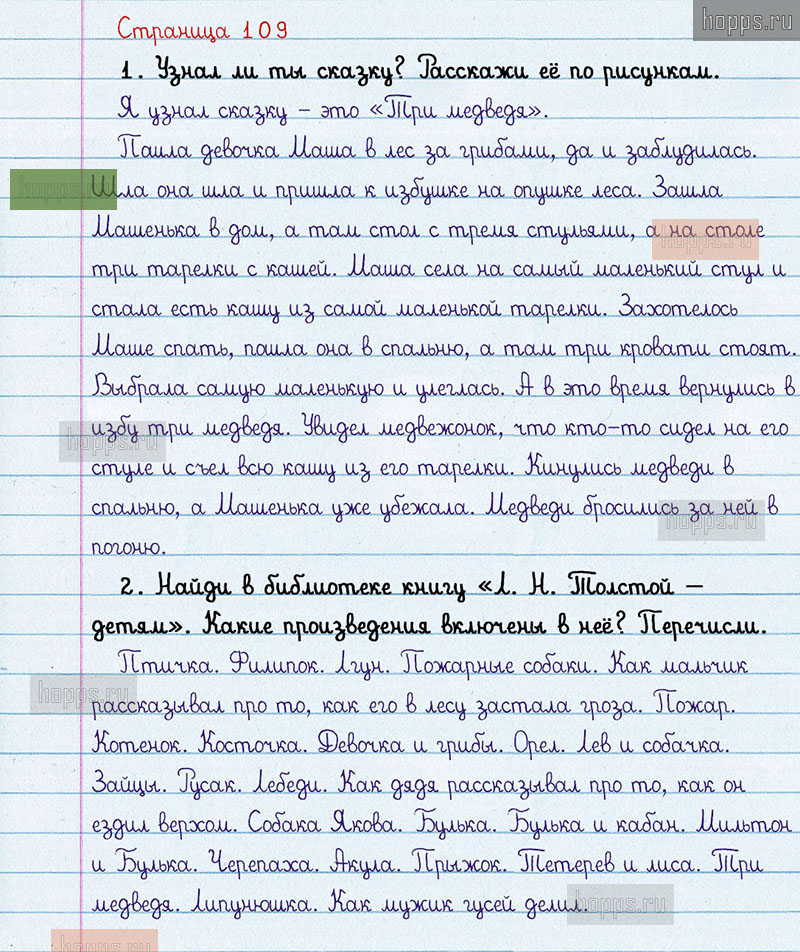 hopps.ru
Страница 109
1. Узнал ли ты сказку? Расскажи её по рисункам.
Я узнал сказку – это «Три медведя».
Пошла девочка Маша в лес за грибами, да и заблудилась.
hopps.ru
Шла она шла и пришла к избушке на опушке леса. Зашла
Машенька в дом, а там стол с тремя стульями, а на столе
hopps.ru
три тарелки с кашей. Маша села на самый маленький стул и
стала есть кашу из самой маленькой тарелки. Захотелось
Маше спать, пошла она в спальню, а там три кровати стоят.
Выбрала самую маленькую и улеглась. А в это время вернулись в
избу три медведя. Увидел медвежонок, что кто-то сидел на его
hopps.ru
стуле и съел всю кашу из его тарелки. Кинулись медведи в
спальню, а Машенька уже убежала. Медведи бросились за ней в
hopps.ru
погоню.
2. Найди в библиотеке книгу «Л. Н. Толстой –
детям». Какие произведения включены в неё? Перечисли.
Птичка. Филипок. Лгун. Пожарные собаки. Как мальчик
hopps.ru
рассказывал про то, как его в лесу застала гроза. Пожар.
Котенок. Косточка. Девочка и грибы. Орел. Лев и собачка.
Зайцы. Русак. Лебеди. Как дядя рассказывал про то, как он
ездил верхом. Собака Якова. Булька. Булька и кабан. Мильтон
и Булька. Черепаха. Акула. Прыжок. Тетерев и лиса. Три
медведя. Липунюшка. Как мужик гусей делил.
hopps.ru
hopps.ru